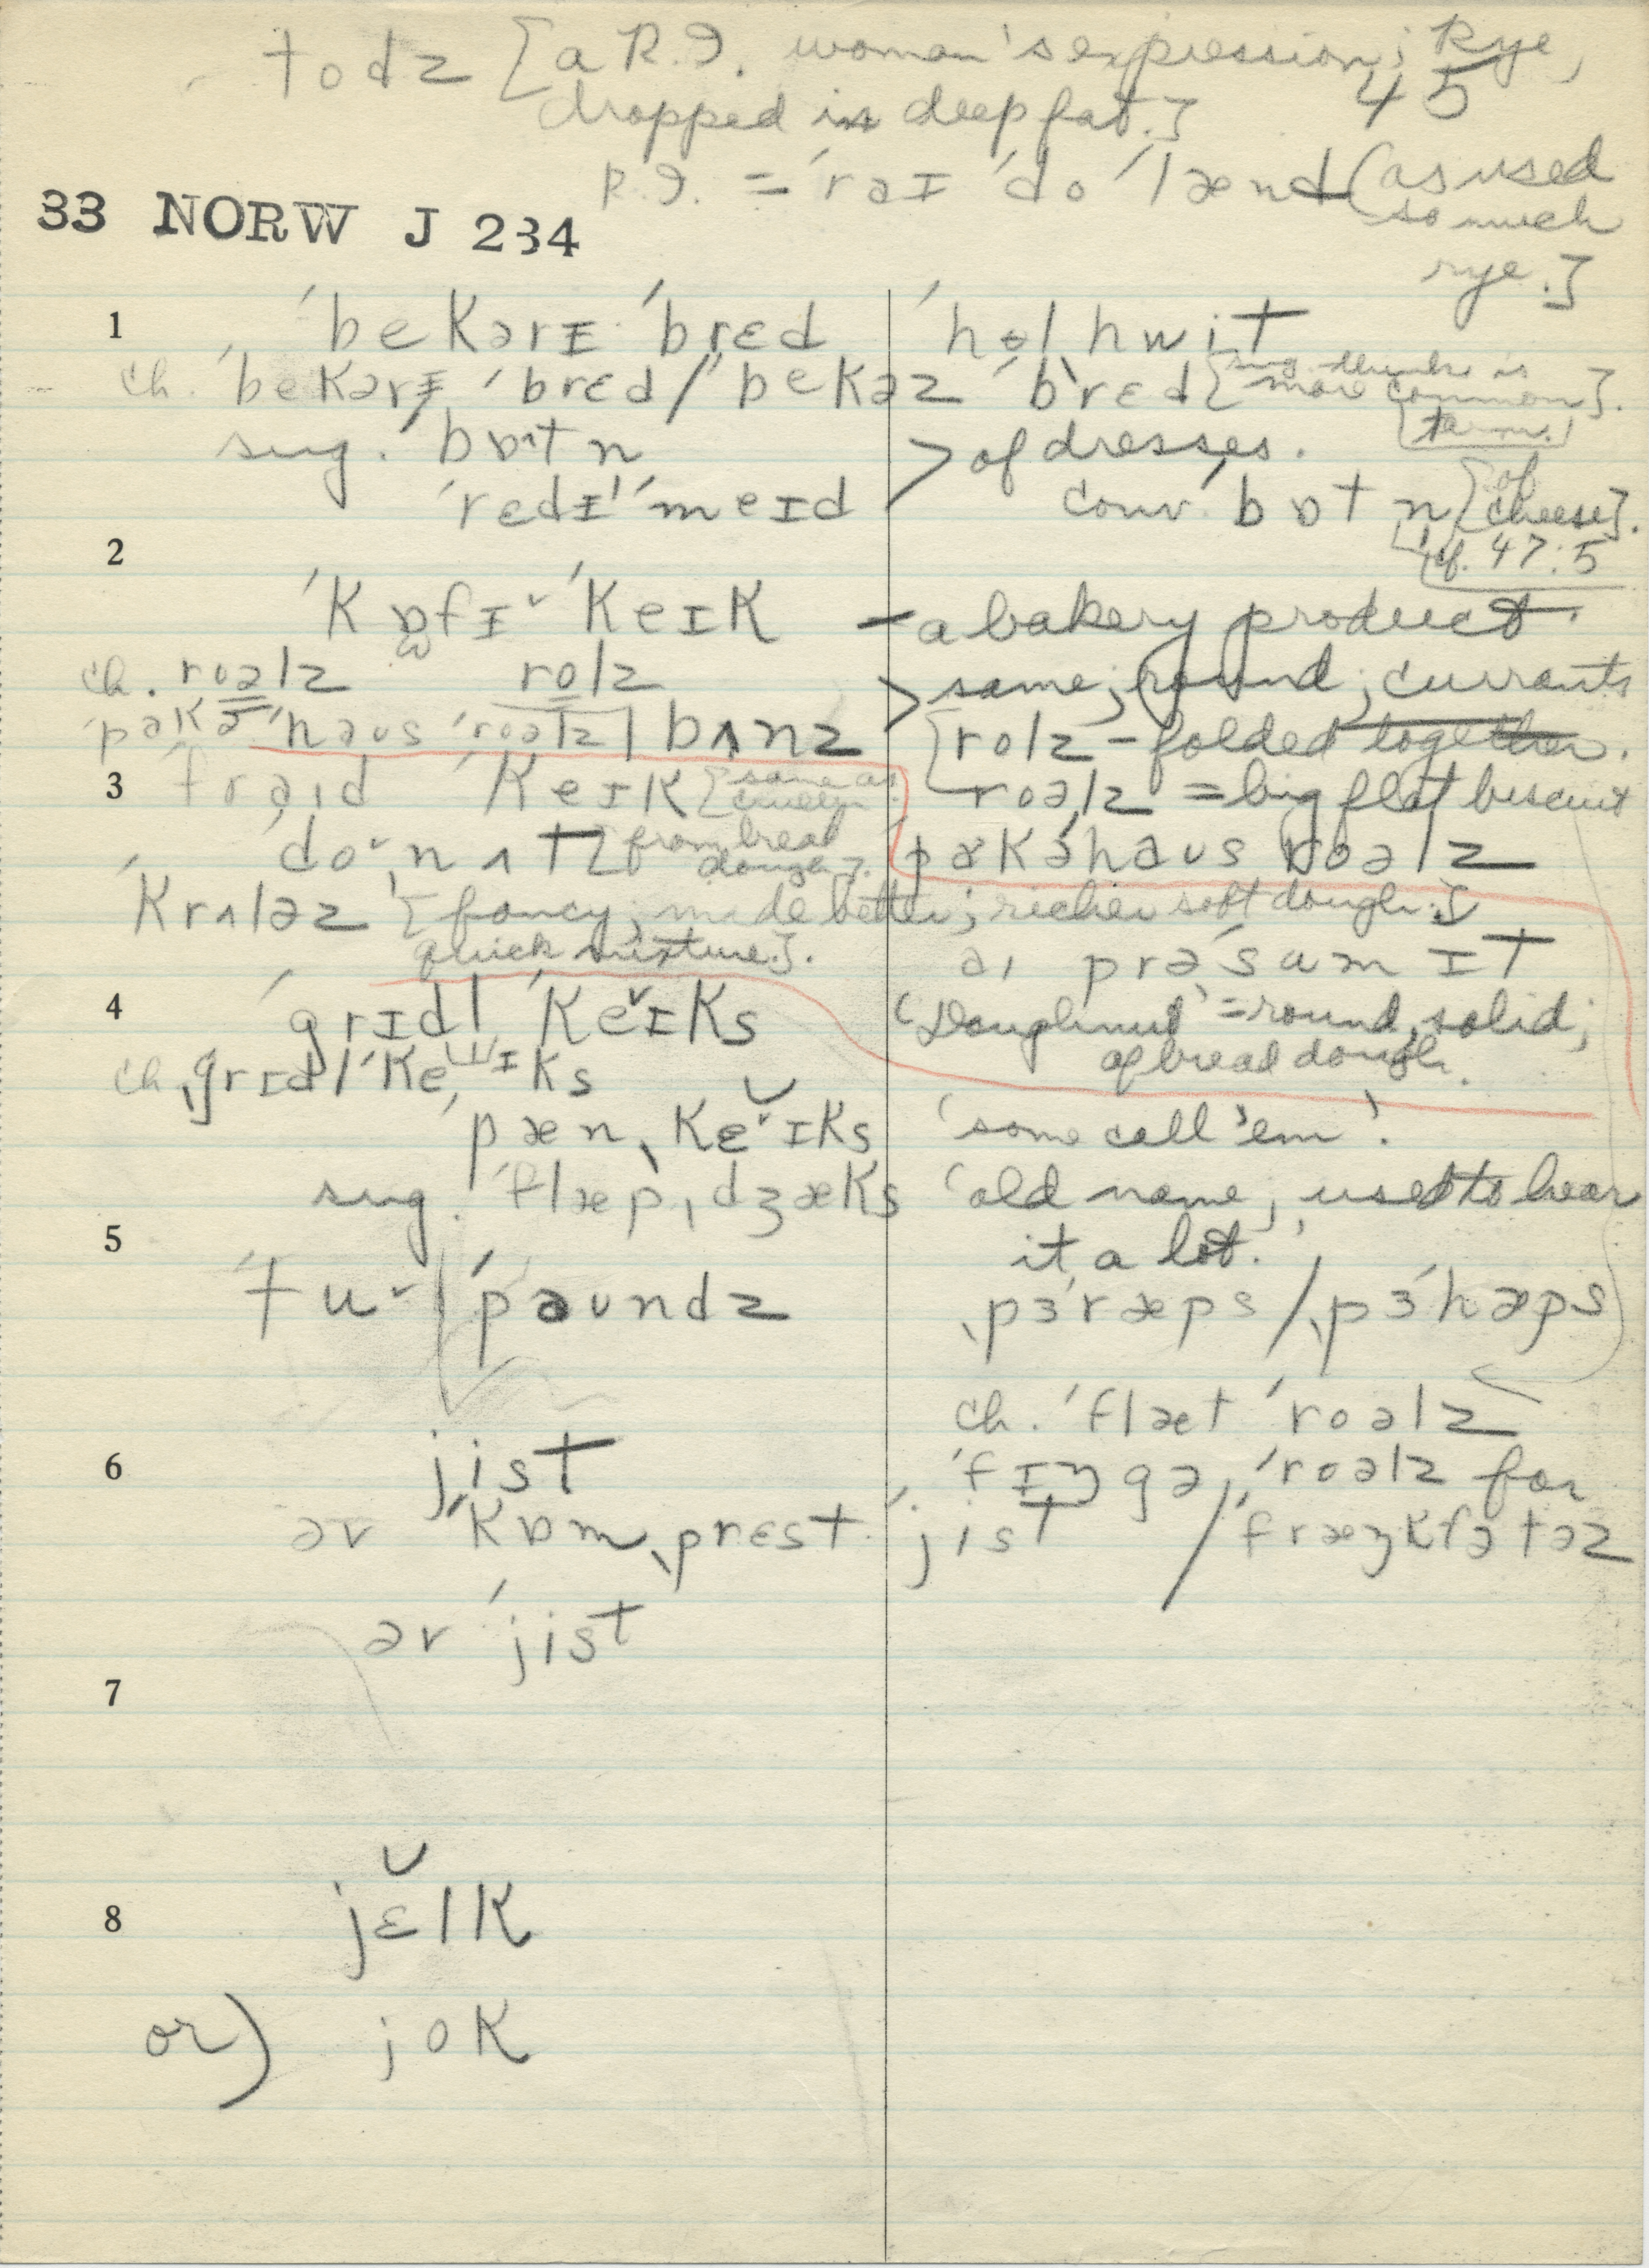 todz [a R.I. woman's expression; Rye,
dropped in deep fat.]
45
R.I. = ˈrəɪ ˈdo ˈlænd (as used
so much
rye.]
33 NORW J 234
1 ˈbekərɪ ˈbrɛd ˈholhwit
ch. ˈbekərɪ ˈbrɛd / ˈbekəz ˈbrɛd [sug. thinks is
more common].
[term.]
sug. ˈbɒtn > of dresses.
ˈrɛdɪ ˈmeɪd conv. ˈbɒtn [of
cheese].
[cf. 47:5
2
ˈkɒfɪˇ ˈkeɪk – a bakery product.
ch. roəlz rolz > same; round; currants
ˈpɑkə ˈhaʊs ˈroəlz | bʌnz [rolz – folded together.
3 ˈfraɪd ˈkeɪk [same as roəlz = big flat biscuit
ˈdoˇˌnʌt [from bread
dough]. ˈpɑkəˈhaʊs roəlz
ˈkrʌləz [fancy; made better; richer soft dough;
quick mixture]. aɪ prəˈsumɪt
4 ˈgrɪdl ˈkeˇɪks 'Doughnut' = round, solid;
of bread dough.
ch. ˌgrɪdl ˈkeɪks
ˈpæn ˌkɛˇɪks 'some call 'em'.
sug. ˈflæpˌdʒæks 'old name, used to hear
it a lot.'
5
ˈtuˇ | ˈpaʊndz ˌpɜˈræps / ˌpɜˈhæps
ch. ˈflæt ˈroəlz
6 jist ˈfɪŋgə ˈroəlz for
əv ˈkɒmˌprɛst ˈjist / ˈfræŋkfətəz
əv ˈjist
7
8 jɛlk
or) jok